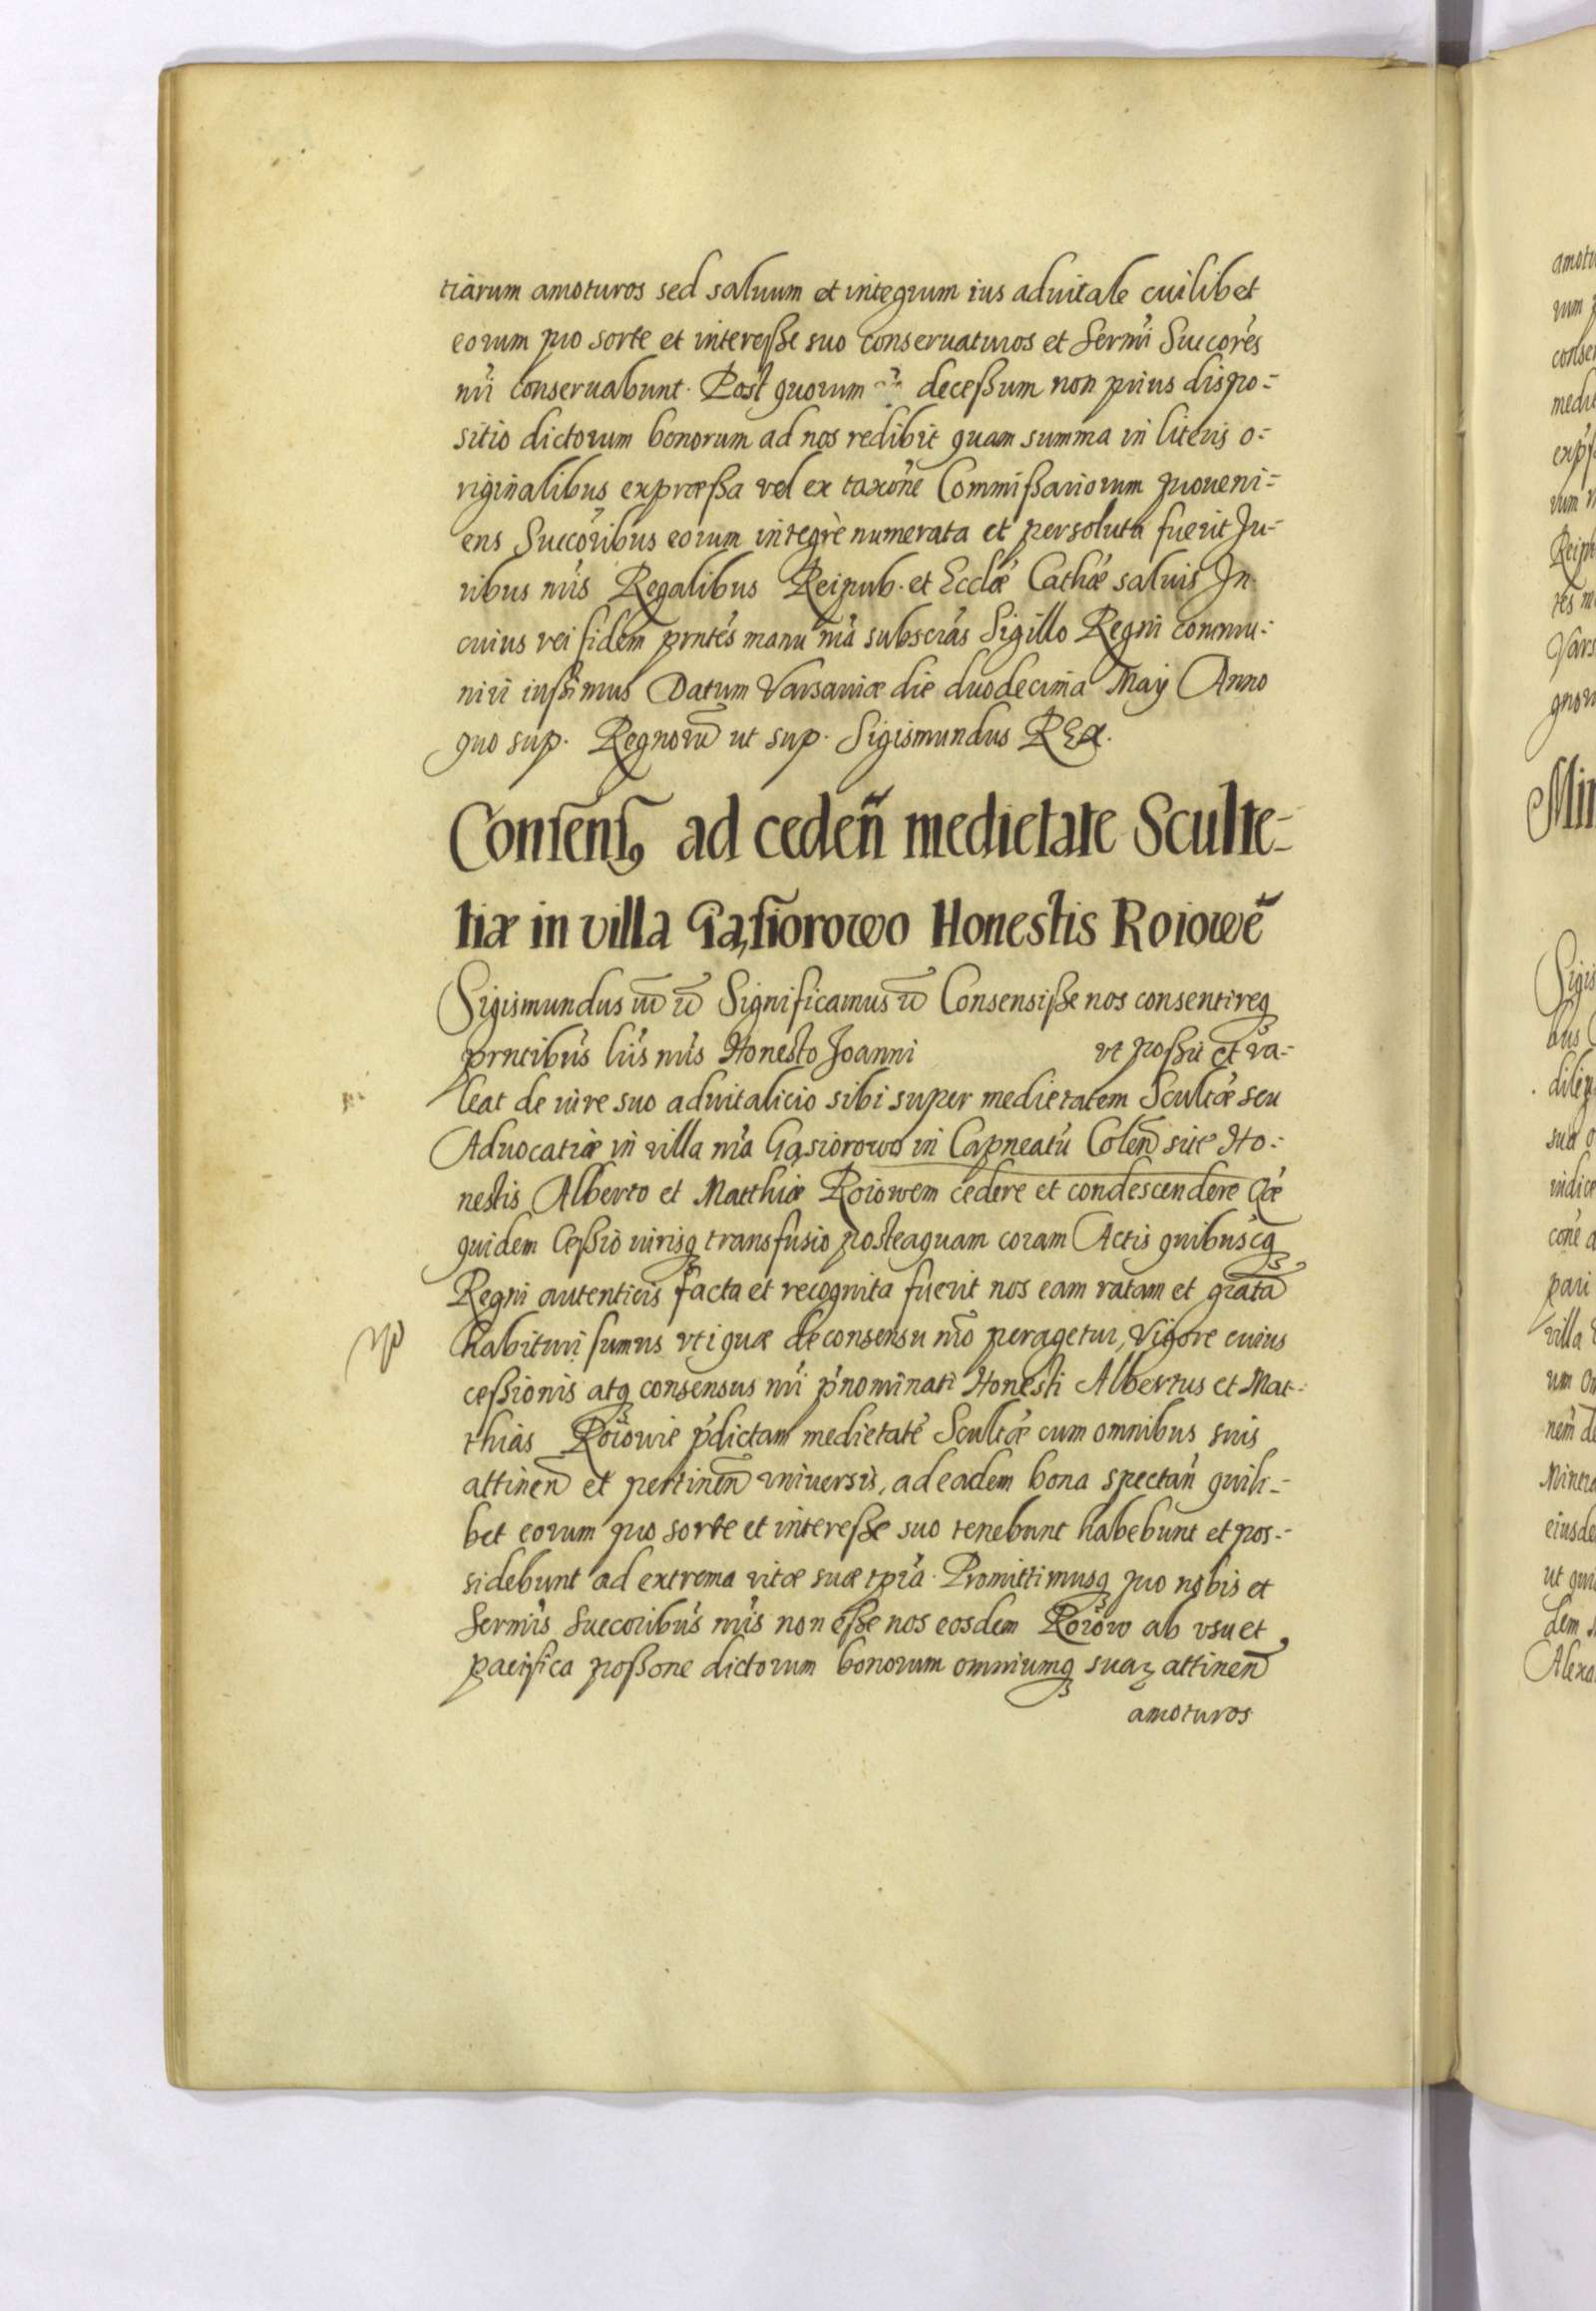 tiarum amoturos sed saluum et integrum ius aduitale cuilibet
eorum pro sorte et interesse suo conseruaturos et Sermi Succores
nri conseruabunt. Post quorum decessum non prius dispo-
sitio dictorum bonorum ad nos redibit quam summa in literis o-
riginalibus expræssa vel ex taxone Commissariorum proueni-
ens Succoribus eorum integrè numerata et persoluta fuerit Ju-
ribus nris Regalibus Reipub. et Ecclæ Cathæ saluis In
cuius rei fidem pntes manu nra subscras Sigillo Regni commu-
niri iussimus Datum Varsauiæ die duodecima Maÿ Anno
quo sup. Regnorū ut sup. Sigismundus REX.
Consensꝰ ad cedeñ medietate Sculte-
tiæ in villa Gąsiorowo Honestis Roiowē
Sigismundus Significamus Consensisse nos consentireq
prntibus lris nris Honesto Joanni vt possit et va-
leat de iure suo aduitalicio sibi super medietatem Scultæ seu
Aduocatiæ in villa nra Gąsiorowo in Capneatu Coleñ sitæ Ho-
nestis Alberto et Matthiæ Roiowem cedere et condescendere Qæ
quidem Cessio iurisq transfusio posteaquam coram Actis quibuscq
Regni autenticis facta et recognita fuerit nos eam ratam et gratā
habituri sumus vti quæ de consensu nro peragetur, Vigore cuius
cessionis atq consensus nri p'nominati Honesti Albertus et Mat-
thias Roiowie p'dictam medietate Scultæ cum omnibus suis
attineñ et pertineñ vniuersis, ad eadem bona spectañ quili-
bet eorum pro sorte et interesse suo tenebunt habebunt et pos-
sidebunt ad extrema vitæ suæ tpra. Promittimusq pro nobis et
Sermis Succoribus nris non esse nos eosdem Roiow ab vsu et
pacifica possone dictorum bonorum omniumq suaꝝ attineñ
amoturos